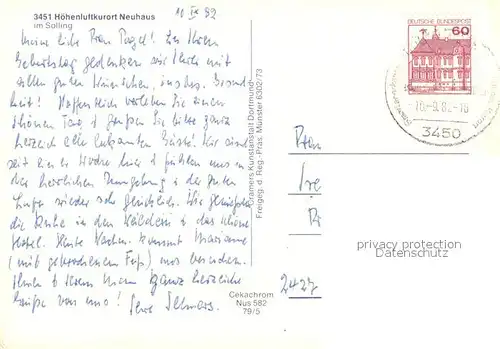 3451 Höhenluftkurort Neuhaus
im Solling
10 IX 82
Meine liebe Frau Pagel! Zu Ihrem
Geburtstag gedenken wir Ihrer mit
allen guten Wünschen, insbes. Gesund-
heit! Hoffentlich verleben Sie einen
schönen Tag & grüßen Sie bitte ganz
herzlich alle bekannten Gäste! Wir sind
seit einer Woche hier & fühlen uns in
der herrlichen Umgebung & der guten
Luft wieder sehr glücklich. Wir genießen
die Ruhe in den Wäldern & das schöne
Hotel. Heute kommt Marianne
(mit gebrochenem Fuß) uns besuchen.
Ihnen & Ihrem Mann ganz herzliche
Grüße von uns! Ihre
Cramers Kunstanstalt Dortmund
Freigeg. d. Reg.-Präs. Münster 6202/73
Cekachrom
Nus 582
79/5
DEUTSCHE BUNDESPOST
60
10.-9.82-18
3450
Frau
2427
privacy protection
Datenschutz